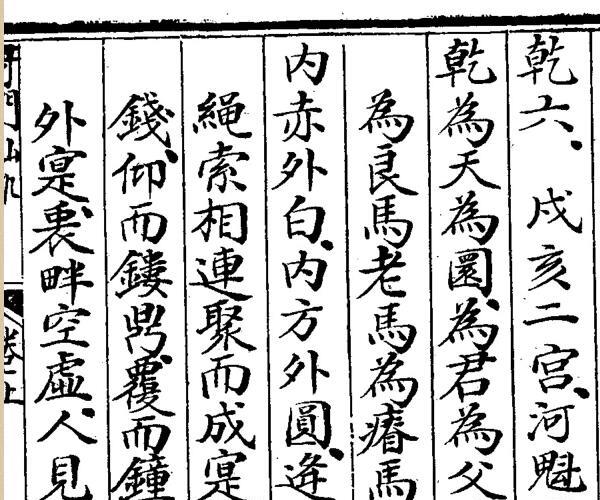 乾六、戌亥二宫、河魁
乾為天為圜、為君為父
為良馬老馬為瘠馬
内赤外白、内方外圓、逄
繩索相連聚而成寔
錢、仰而鏤鼎、覆而鐘
外寔裏畔空虛、人見
奇門仙机 卷上